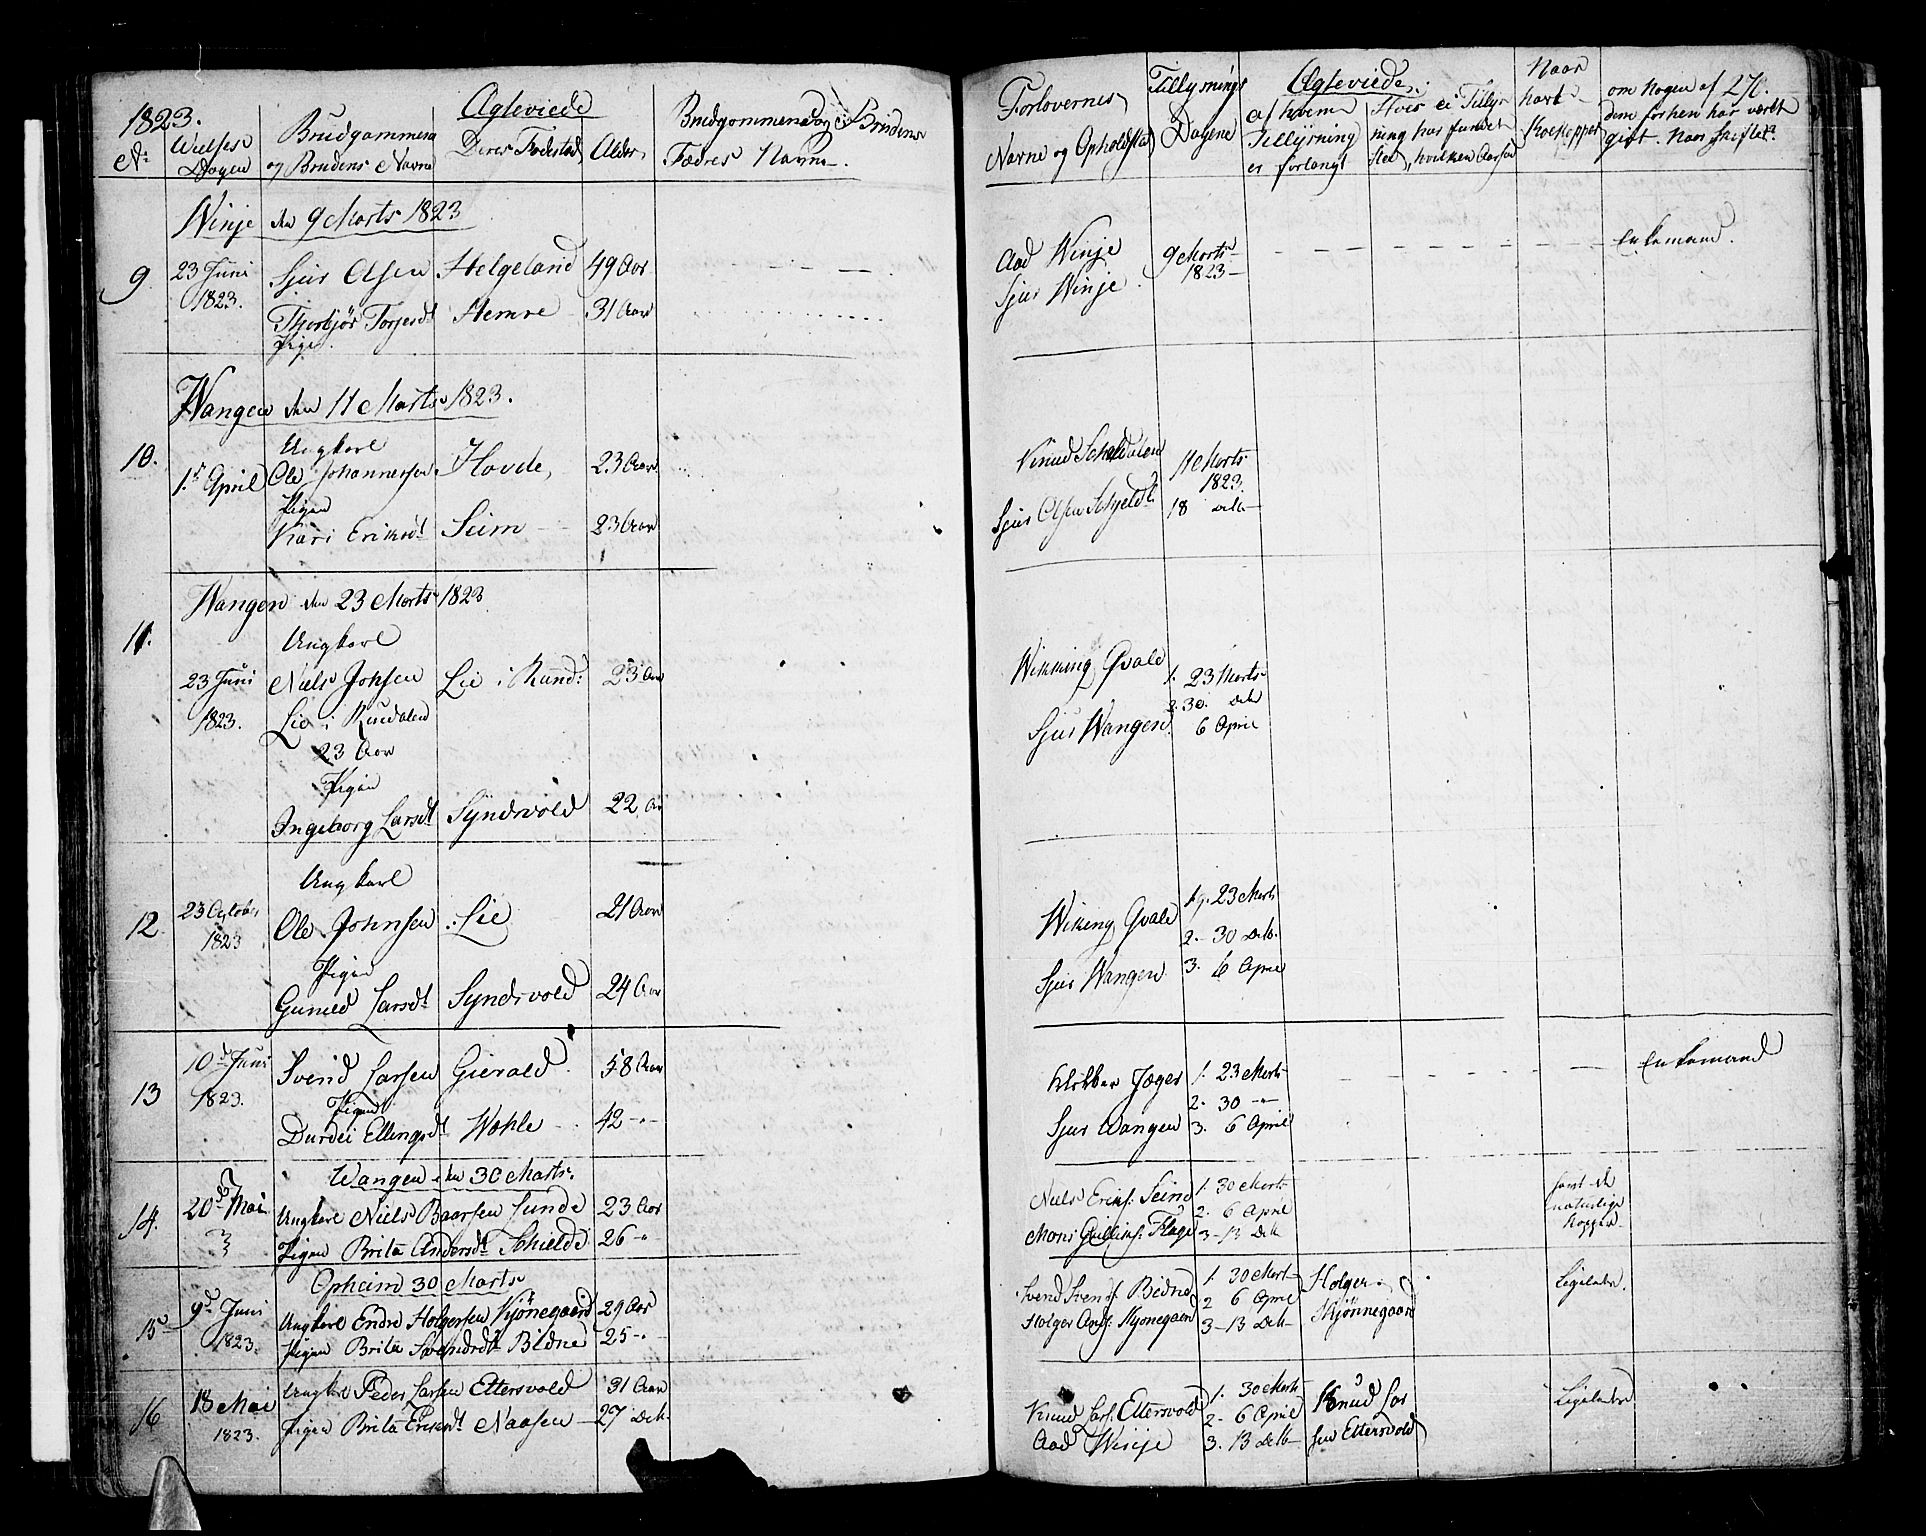 1823. Ægteviede
No Vielses Dagen Brudgommens og Brudens Navne Deres Fødested Alder Brudgommens og Brudens Fædres Navne
Winje den 9 Marts 1823
9 23 Juni 1823. Sjur Olsen Helgeland 49 Aar
Thorbjør Torgersdt Hemre 31 Aar
Pige.
Wangen den 11 Marts 1823.
10. Ungkarl
1st April Ole Johannesen Hovde, 23 Aar
Pigen
Kari Eriksdt Seim 23 Aar
Wangen den 23 Marts 1823
11. Ungkarl
23 Juni 1823. Niels Johsen Lie i Rund: 23 Aar
Lie i Rundalen
23 Aar
Pigen
Ingeborg Larsdt Syndvold 22 Aar
Ungkarl
12 23 October 1823 Ole Johnsen Lie 21 Aar
Pigen
Gunild Larsdt Syndvold 24 Aar
13 10d Juni 1823. Svend Larsen Gierald 58 Aar
Pigen
Durdei Ellingsdt Wæhle 42 -"-
Wangen den 30 Marts
14. 20d Mai Ungkarl Niels Baarsen Sunde 23 Aar
Pigen Brita Andersdt Schielde 26 -"
Opheim 30 Marts
15 9d Juni 1823. Ungkarl Endre Holgersen Kjønegaard 29 Aar
Pigen Brita Svendsdt Bidne 25 -"
16 18 Mai 1823. Ungkarl Peder Larsen Ettersvold 31 Aar
Pigen Brita Eriksdt Naasen 27 Dito
Ægteviede. 270.
Forlovernes Navne og Opholdsted Tillysnings Dagene af hvem Tillysning er forlangt Hvis ei Tillysning har fundet Sted, hvilken Aarsag Naar havt Koekopper om Nogen af dem forhen har været gift. Naar Skiftet
Aad Winje 9 Marts 1823 Enkemand.
Sjur Winje
Knud Scheldalen 11 Marts 1823.
Sjur Olsen 18 dito
Wikking Qvale 1. 23 Marts
2. 30. dito
Sjur Wangen 6 April
Wiking Qvale 1. 23 Marts
2. 30 Dito
Sjur Wangen 3. 6 April
Klokker Jæger 1. 23 Marts Enkemand
2. 30 -"-
Sjur Wangen 3. 6 April
Niels Eriks. Seim 1. 30 Marts havt de naturlige Kopper
2. 6 April
Mons Flage 3 - 13 Dito
Svend Svends. Bidne 1. 30 Marts Holger Kjønnegaard Ligeledes.
2 6 April
Holger And. Kjonegaard 3 - 13 Dito
Knud Lars. Ettersvold 1. 30 Marts Knud Larsen Ettersvold Ligeledes
2 - 6 April
Aad Winje 3. 13 Dito